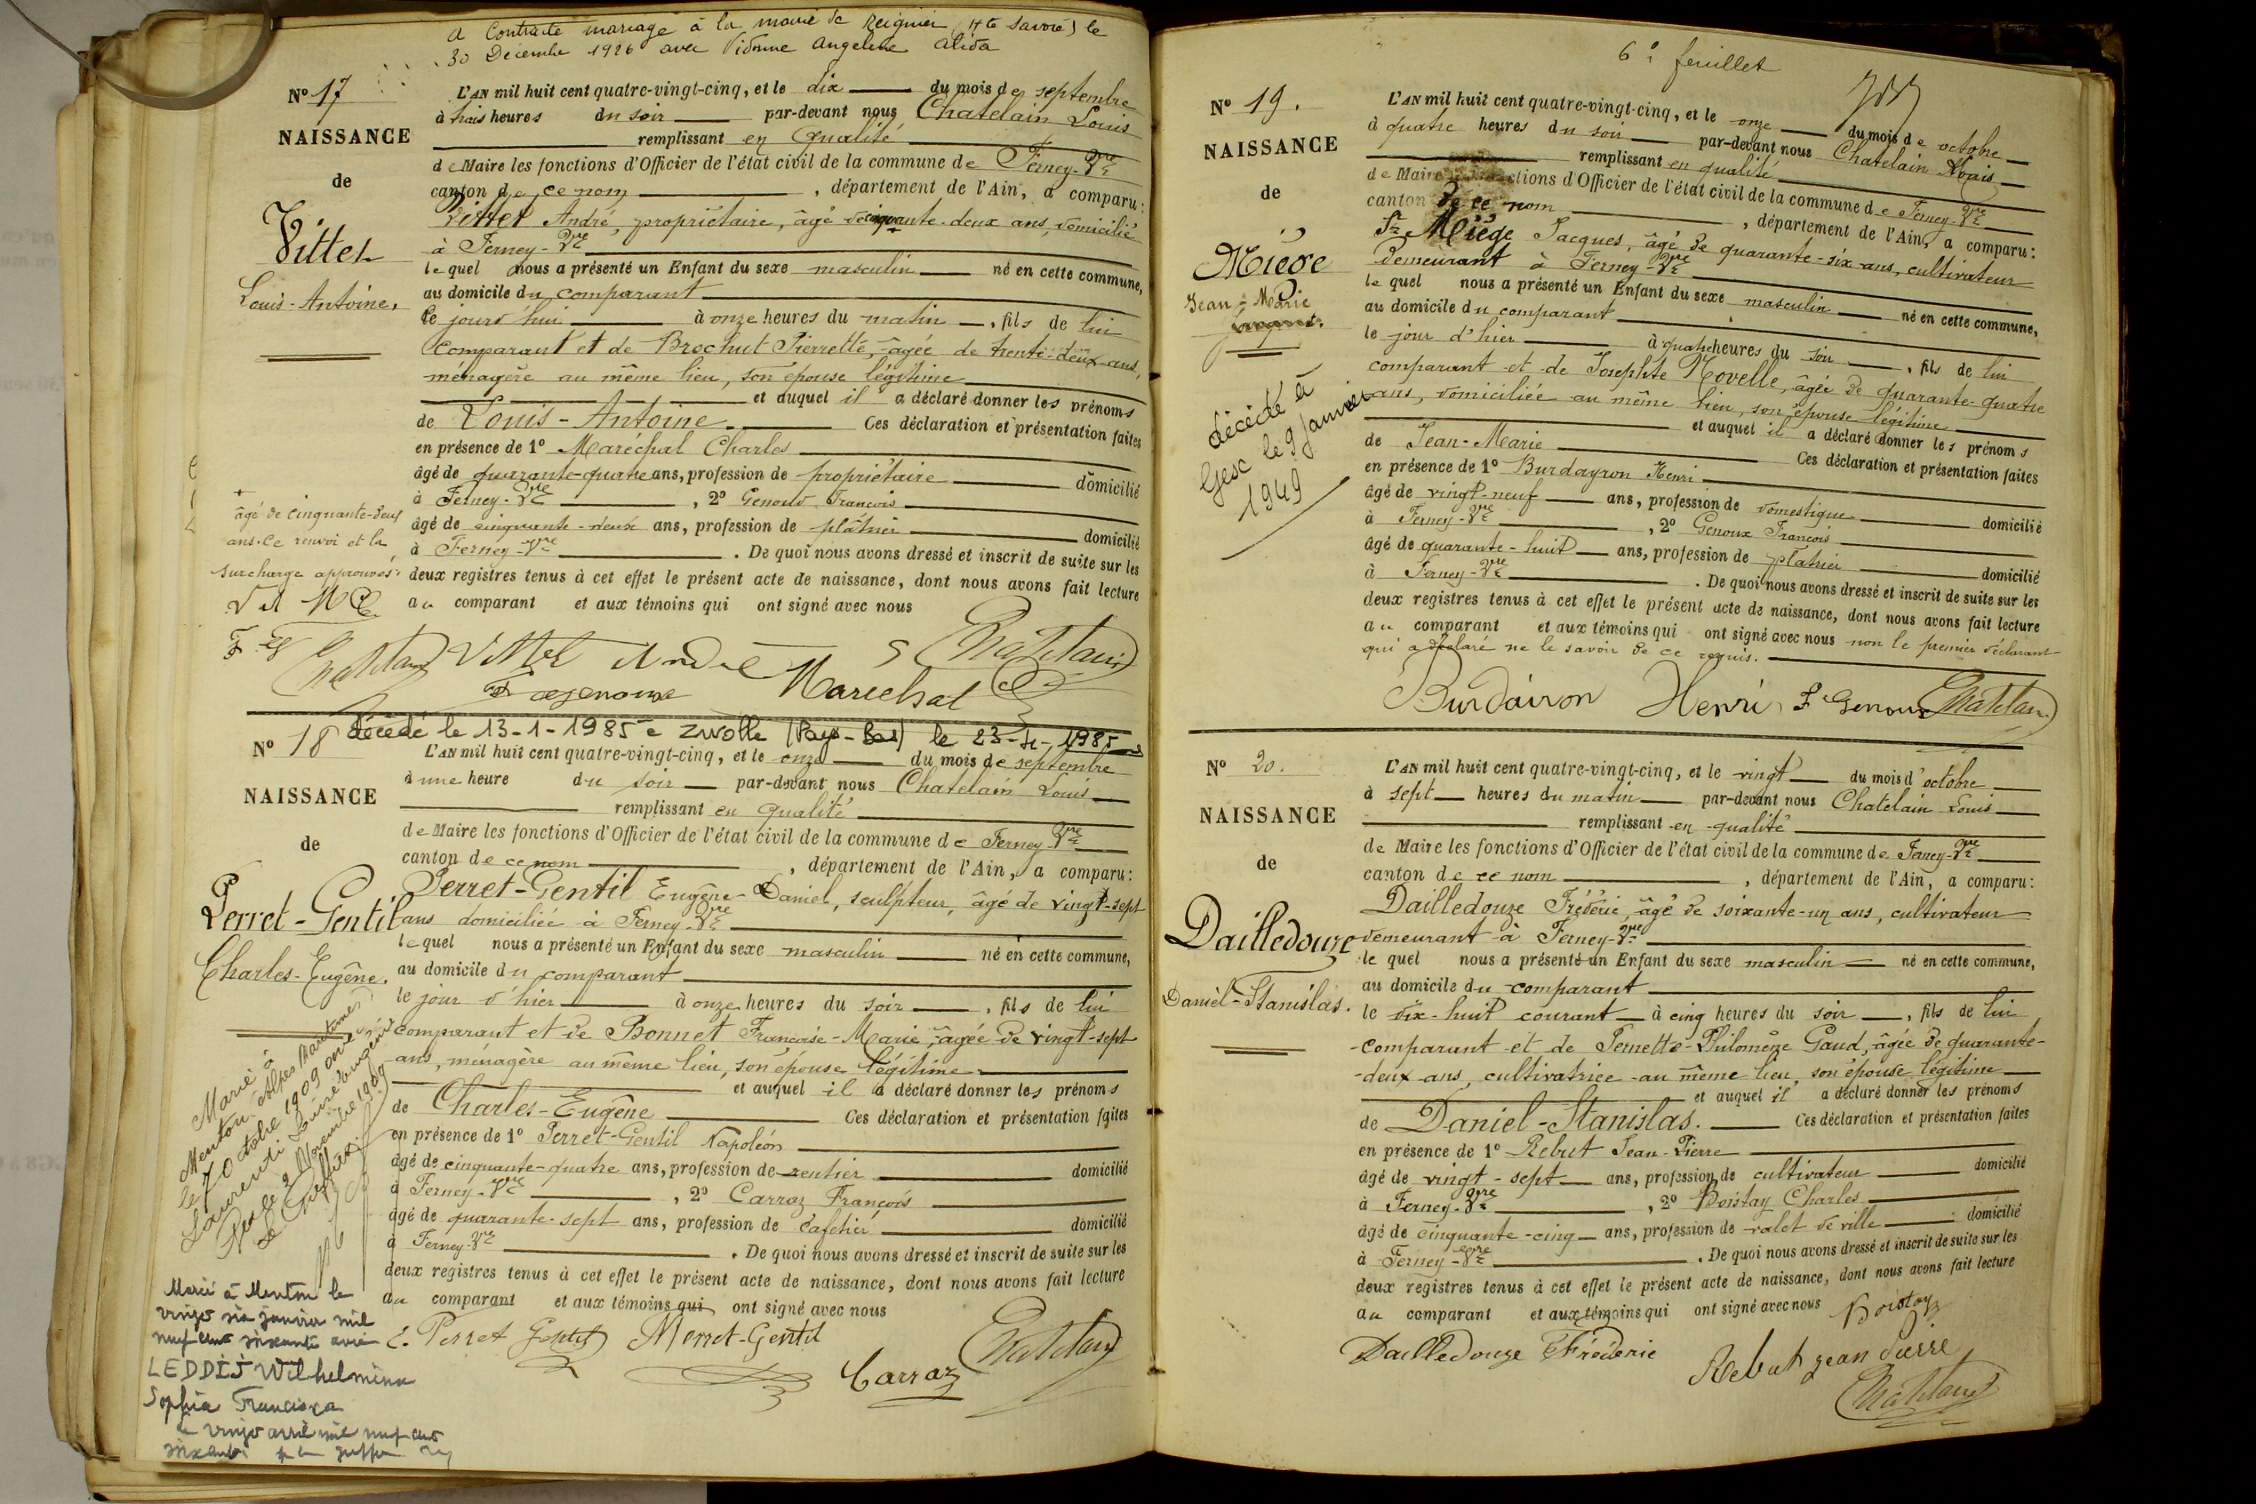 a Contracté mariage à la mairie de Reignier (Hte Savoie) le
30 Décembre 1926 avec Vidonne Angeline Alida
No 17
NAISSANCE
de
Vittet
Louis-Antoine.
L'AN mil huit cent quatre-vingt-cinq, et le dix du mois de septembre
à trois heures du soir par-devant nous Chatelain Louis
remplissant en qualité
de Maire les fonctions d'Officier de l'état civil de la commune de Ferney-Vre
canton de ce nom, département de l'Ain, a comparu:
Vittet André, propriétaire, âgé de cinquante-deux ans, domicilié
à Ferney-Vre
lequel nous a présenté un Enfant du sexe masculin né en cette commune,
au domicile du comparant
ce jourd'hui à onze heures du matin, fils de lui
comparant et de Brochut Pierrette, âgée de trente-deux ans,
ménagère au même lieu, son épouse légitime
et auquel il a déclaré donner les prénoms
de Louis-Antoine. Ces déclaration et présentation faites
en présence de 1o Maréchal Charles
âgé de quarante-quatre ans, profession de propriétaire domicilié
à Ferney-Vre, 2o Genoud François
âgé de cinquante-deux ans, profession de plâtrier domicilié
à Ferney-Vre. De quoi nous avons dressé et inscrit de suite sur les
deux registres tenus à cet effet le présent acte de naissance, dont nous avons fait lecture
au comparant et aux témoins qui ont signé avec nous
+
âgé de cinquante-deux
ans. Ce renvoi et la
surcharge approuvés.
Chatelain Vittet André Chatelain
Marechal
No 18
décédé le 13-1-1985 à Zwolle (Pays-Bas) le 23-4-1985
NAISSANCE
de
Perret-Gentil
Charles-Eugène.
L'AN mil huit cent quatre-vingt-cinq, et le onze du mois de septembre
à une heure du soir par-devant nous Chatelain Louis
remplissant en qualité
de Maire les fonctions d'Officier de l'état civil de la commune de Ferney-Vre
canton de ce nom, département de l'Ain, a comparu:
Perret-Gentil Eugène-Daniel, sculpteur, âgé de vingt-sept
ans domiciliée à Ferney-Vre
lequel nous a présenté un Enfant du sexe masculin né en cette commune,
au domicile du comparant
le jour d'hier à onze heures du soir, fils de lui
comparant et de Bonnet Françoise-Marie, âgée de vingt-sept
ans, ménagère au même lieu, son épouse légitime
et auquel il a déclaré donner les prénoms
de Charles-Eugène Ces déclaration et présentation faites
en présence de 1o Perret-Gentil Napoléon
âgé de cinquante-quatre ans, profession de rentier domicilié
à Ferney-Vre, 2o Carraz François
âgé de quarante-sept ans, profession de cafetier domicilié
à Ferney-Vre. De quoi nous avons dressé et inscrit de suite sur les
deux registres tenus à cet effet le présent acte de naissance, dont nous avons fait lecture
au comparant et aux témoins qui ont signé avec nous
E. Perret Gentil Perret-Gentil Chatelain
Carraz
Marié à
Menton, Alpes Maritimes,
le 7 Octobre 1909 avec
Laurenti Louise Eugénie
le 2 Novembre 1909
Le Greffier
Marié à Menton le
vingt six janvier mil
neuf cent soixante avec
LEDDIJ Wilhelmina
Sophia Francisca
le vingt avril mil neuf cent
soixante
6e feuillet
No 19.
NAISSANCE
de
Miège
Jean-Marie
décédé à
Gex le 9 Janvier
1949
L'AN mil huit cent quatre-vingt-cinq, et le onze du mois de octobre
à quatre heures du soir par-devant nous Chatelain Louis
remplissant en qualité
de Maire les fonctions d'Officier de l'état civil de la commune de Ferney-Vre
canton de ce nom, département de l'Ain, a comparu:
Sr Miège Jacques, âgé de quarante-six ans, cultivateur
demeurant à Ferney-Vre
lequel nous a présenté un Enfant du sexe masculin né en cette commune,
au domicile du comparant
le jour d'hier à quatre heures du soir, fils de lui
comparant et de Josephte Novelle, âgée de quarante-quatre
ans, domiciliée au même lieu, son épouse légitime
et auquel il a déclaré donner les prénoms
de Jean-Marie Ces déclaration et présentation faites
en présence de 1o Burdayron Henri
âgé de vingt-neuf ans, profession de domestique domicilié
à Ferney-Vre, 2o Genoux François
âgé de quarante-huit ans, profession de plâtrier domicilié
à Ferney-Vre. De quoi nous avons dressé et inscrit de suite sur les
deux registres tenus à cet effet le présent acte de naissance, dont nous avons fait lecture
au comparant et aux témoins qui ont signé avec nous non le premier déclarant
qui a déclaré ne le savoir de ce requis.
Burdairon Henri F Genoux Chatelain
No 20.
NAISSANCE
de
Dailledouze
Daniel-Stanislas.
L'AN mil huit cent quatre-vingt-cinq, et le vingt du mois d'octobre
à sept heures du matin par-devant nous Chatelain Louis
remplissant en qualité
de Maire les fonctions d'Officier de l'état civil de la commune de Ferney-Vre
canton de ce nom, département de l'Ain, a comparu:
Dailledouze Fréderic, âgé de soixante-un ans, cultivateur
demeurant à Ferney-Vre
lequel nous a présenté un Enfant du sexe masculin né en cette commune,
au domicile du comparant
le dix-huit courant à cinq heures du soir, fils de lui
comparant et de Pernette-Philomène Gaud, âgée de quarante-
-deux ans, cultivatrice au même lieu, son épouse légitime
et auquel il a déclaré donner les prénoms
de Daniel-Stanislas. Ces déclaration et présentation faites
en présence de 1o Rebut Jean-Pierre
âgé de vingt-sept ans, profession de cultivateur domicilié
à Ferney-Vre, 2o Boistay Charles
âgé de cinquante-cinq ans, profession de valet de ville domicilié
à Ferney-Vre. De quoi nous avons dressé et inscrit de suite sur les
deux registres tenus à cet effet le présent acte de naissance, dont nous avons fait lecture
au comparant et aux témoins qui ont signé avec nous Boistay
Dailledouze Fréderic Rebut Jean Pierre
Chatelain